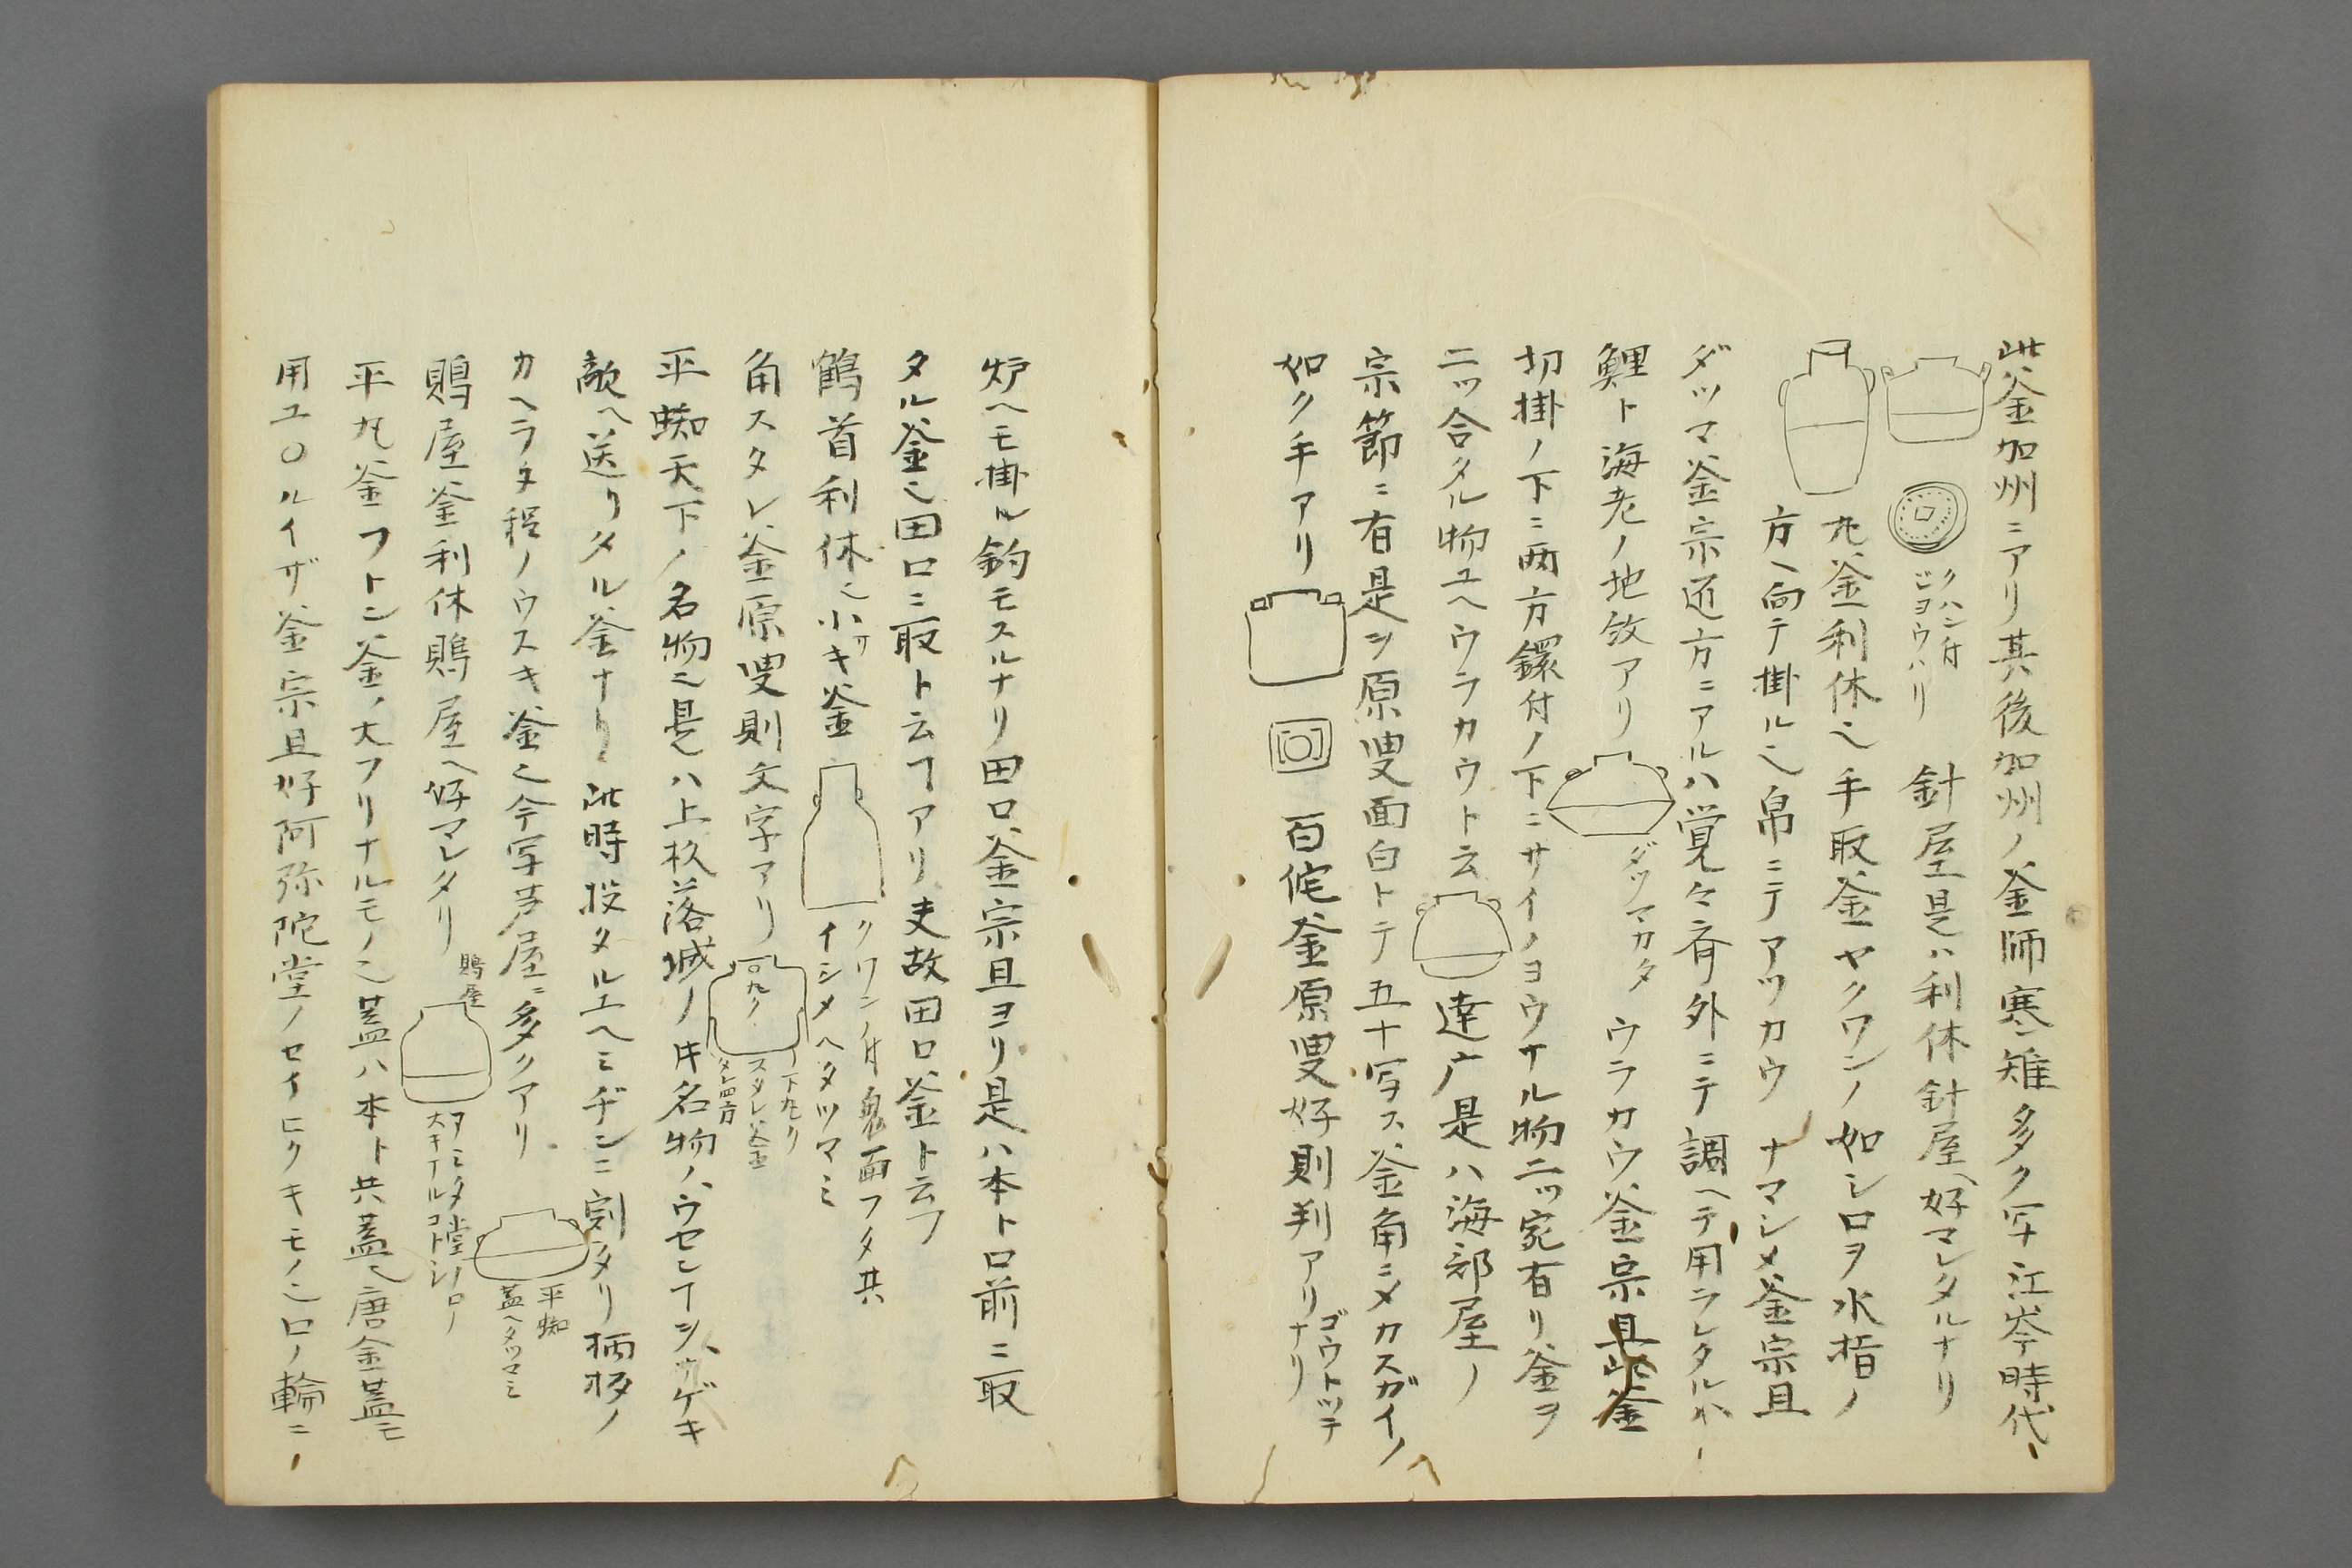 此釜加州ニアリ其後加州ノ釜師寒雉多ク写江岑時代
クハン付
ビヨウハリ
針屋是ハ利休針屋ヘ好マレタルナリ
丸釜利休〻手取釜ヤクワンノ如シロヲ水指ノ
方ヘ向テ掛ル〻帛ニテアツカウ ナマシメ釜宗旦
ダツマ釜宗通方ニアルハ覚々斎外ニテ調ヘテ用ラレタル
鯉ト海老ノ地紋アリ
ダツマカタ
ウラカウ釜宗旦此釜
切掛ノ下ニ両方鐶付ノ下ニサイノヨウナル物二ツ宛有リ釜ヲ
二ツ合タル物ユヘウラカウト云
達广是ハ海部屋ノ
宗節ニ有是ヲ原叟面白トテ五十写ス釜角ニメカスガイノ
如ク手アリ
百侘釜原叟好則判アリ
ゴウトツテ
ナリ
炉ヘモ掛ル釣モスルナリ田口釜宗旦ヨリ是ハ本ト口前ニ取
タル釜〻田口ニ取ト云フアリ夫故田口釜ト云フ
鶴首利休〻小サキ釜
クワン付鬼面フタ共
イシメヘタツマミ
角スタレ釜原叟則文字アリ
口丸ク
下丸ク
スタレ釜
タレ四方
平蜘天下ノ名物〻是ハ上杦落城ノ時名物ノウセンイシカゲキ
敵ヘ送リタル釜ナリ此時投タルエヘミヂンニ割タリ柄杓ノ
カヘラヌ程ノウスキ釜〻今写芦屋ニ多クアリ
平蜘
蓋ヘタツマミ
鴫屋釜利休鴫屋ヘ好マレタリ
鴫屋
アミタ堂ノロノ
大キナルコトシ
平丸釜フトン釜ノ大フリナルモノ〻蓋ハ本ト共蓋〻唐金蓋モ
用ユ〇ルイザ釜宗旦好阿弥陀堂ノセイヒクキモノ〻口ノ輪ニ